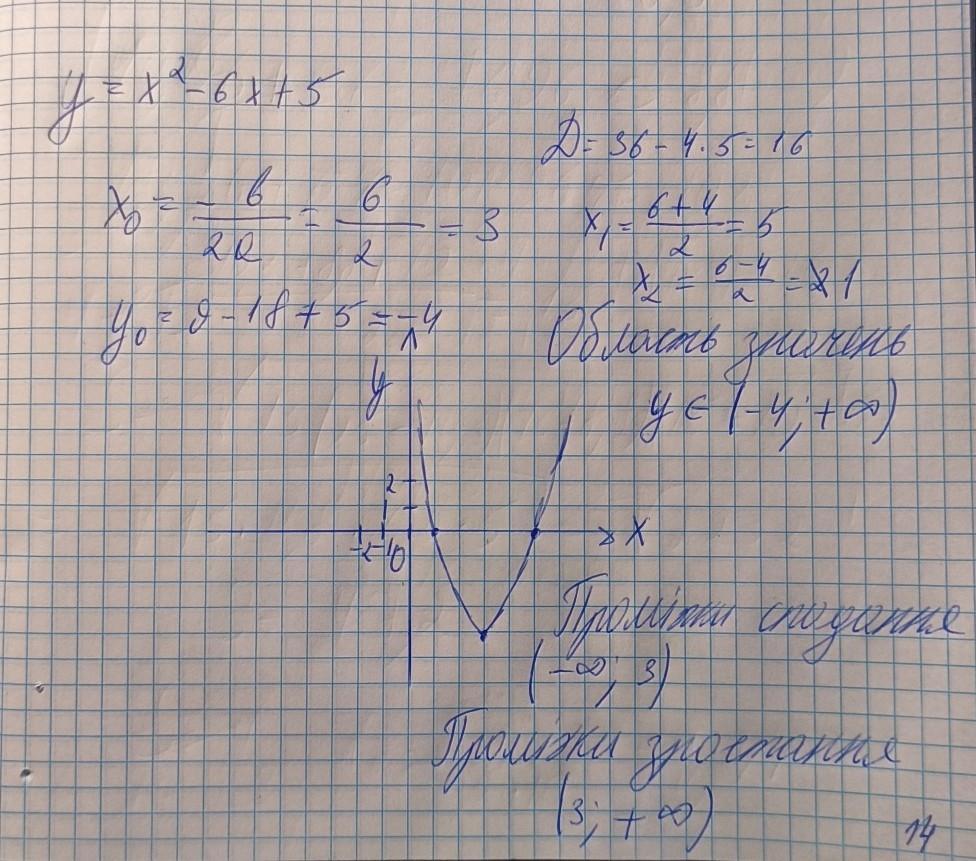 y = x² - 6x + 5
D = 36 - 4·5 = 16
x₀ = -b/2a = 6/2 = 3
x₁ = (6+4)/2 = 5
x₂ = (6-4)/2 = 1
y₀ = 9 - 18 + 5 = -4
Область значень
y ∈ (-4; +∞)
y
2
-2 -1 0
x
Проміжки спадання
(-∞; 3)
Проміжки зростання
(3; +∞)
14